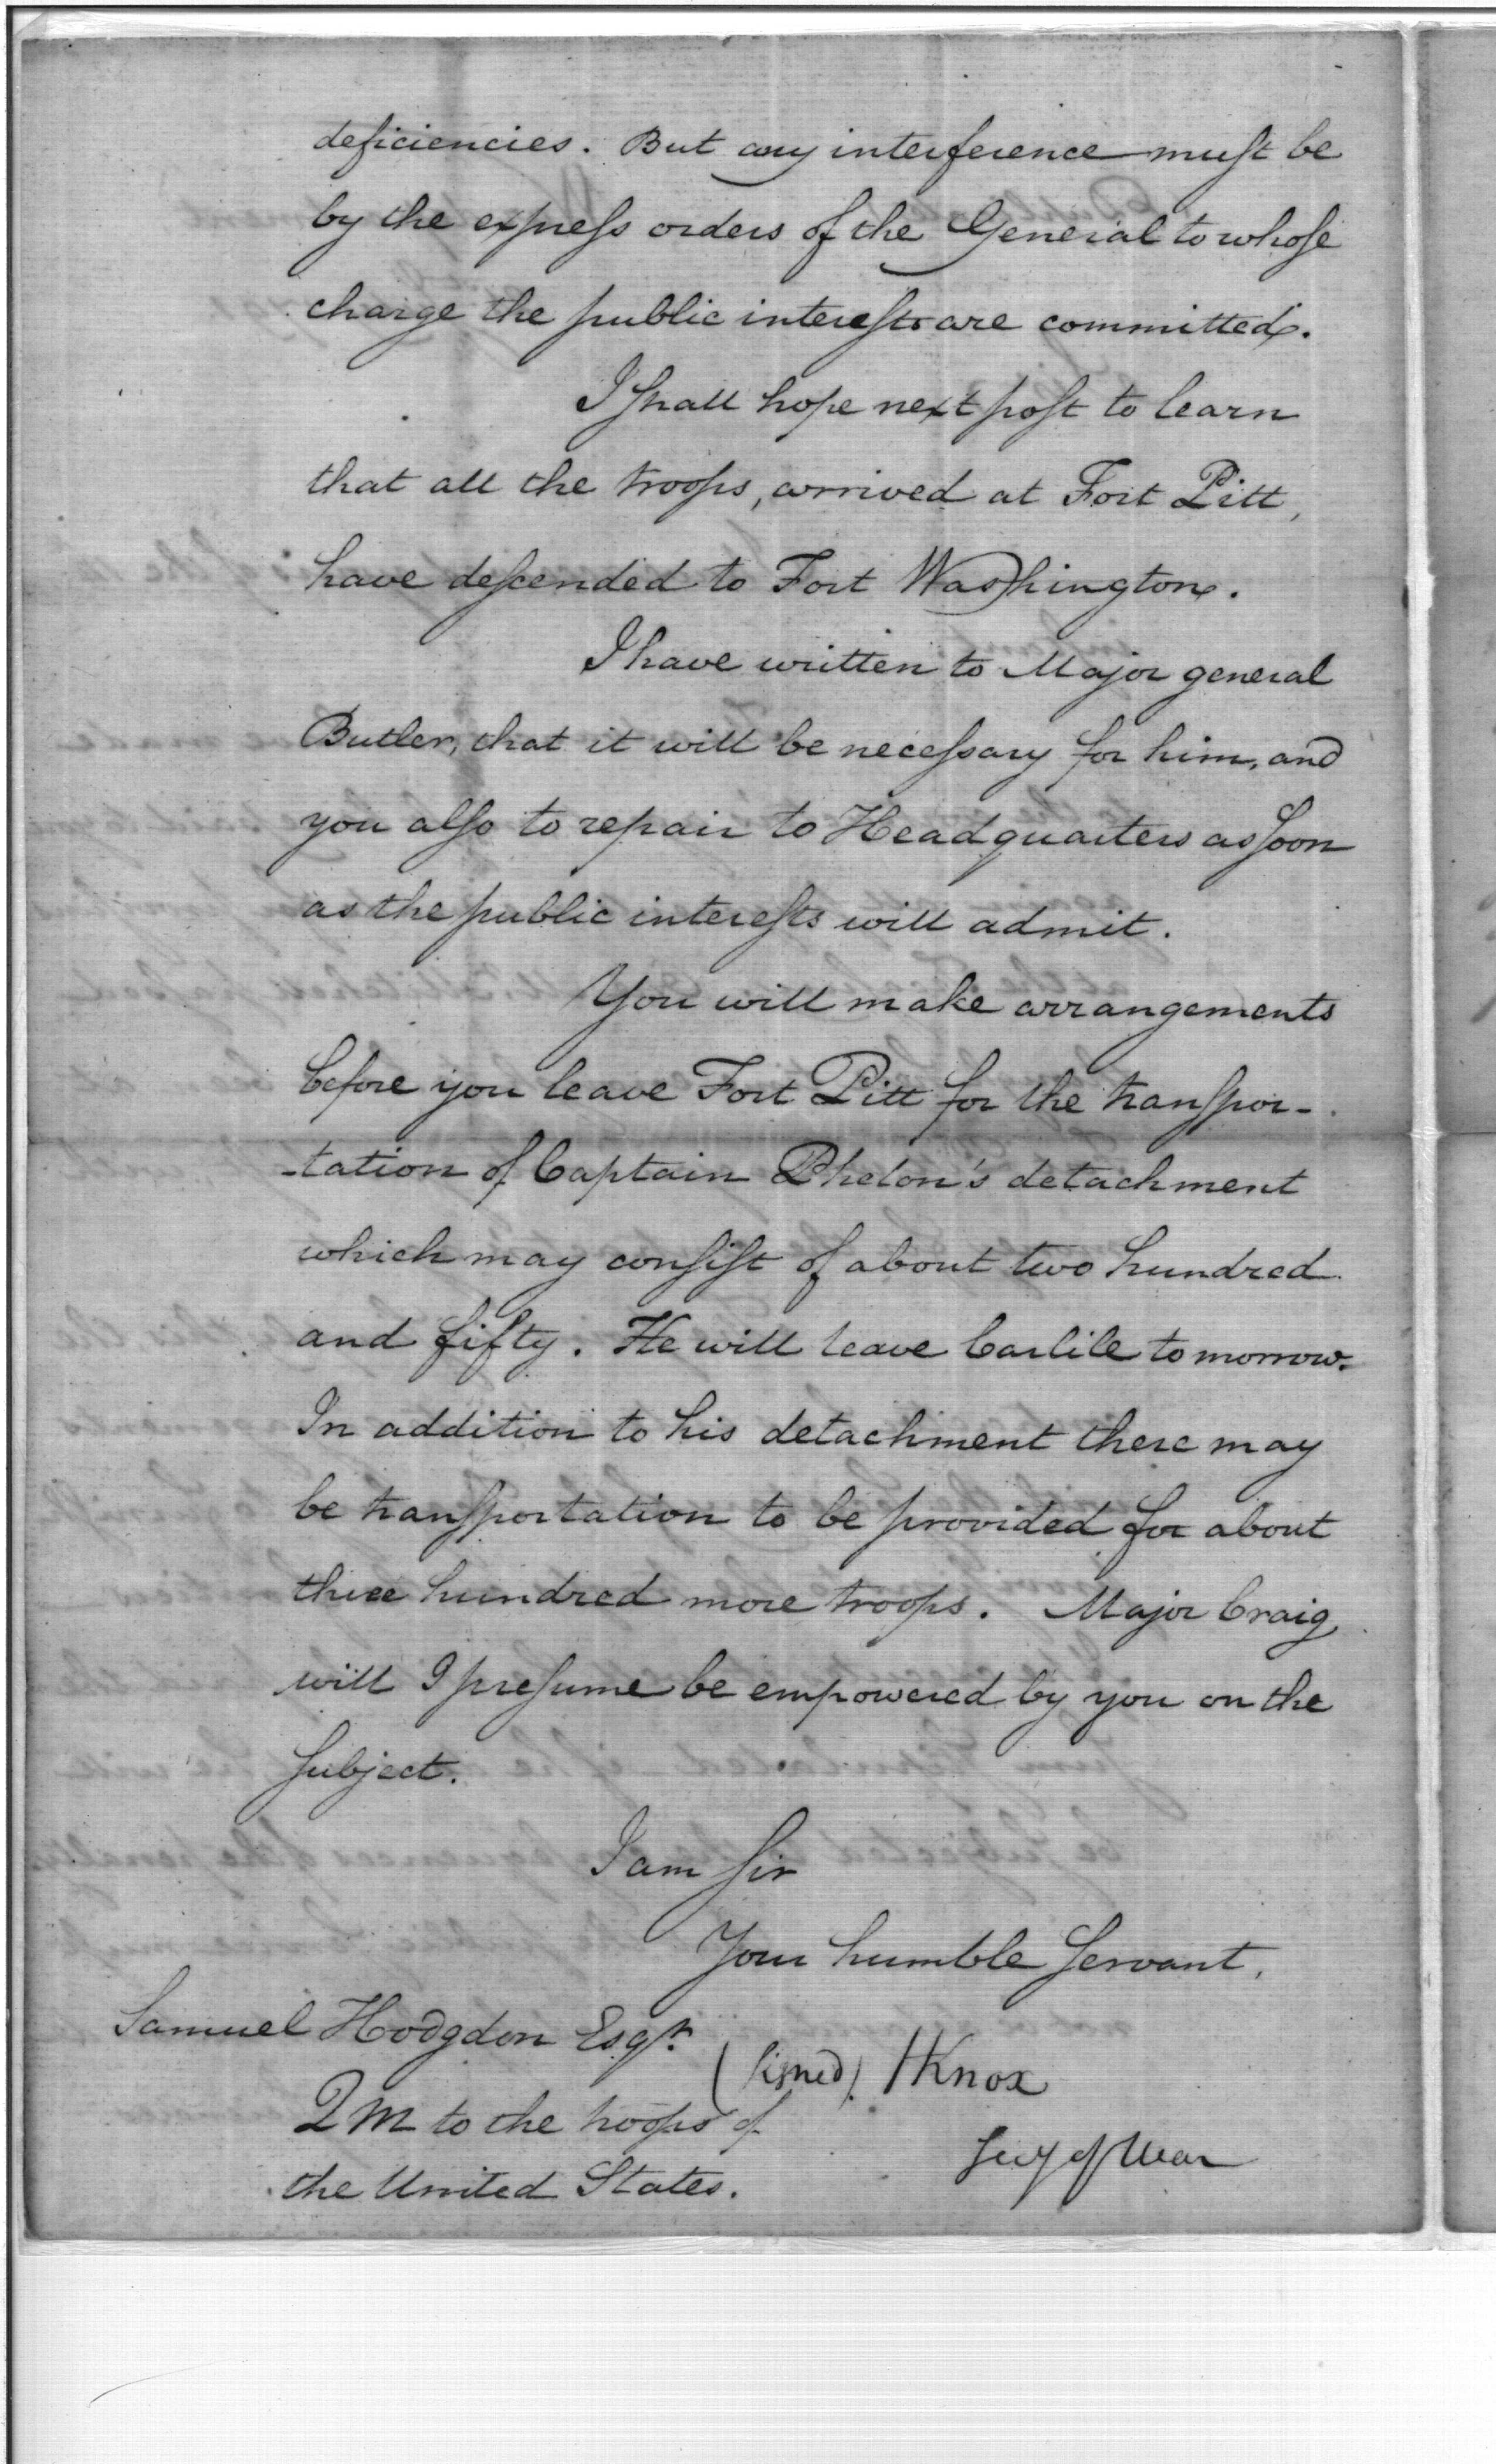 deficiencies. But any interference must be
by the express orders of the General to whose
charge the public interests are committed.
I shall hope next post to learn
that all the troops, arrived at Fort Pitt,
have descended to Fort Washington.
I have written to Major general
Butler, that it will be necessary for him, and
you also to repair to Headquarters as soon
as the public interests will admit.
You will make arrangements
before you leave Fort Pitt for the transpor-
-tation of Captain Phelon's detachment
which may consist of about two hundred
and fifty. He will leave Carlile tomorrow.
In addition to his detachment there may
be transportation to be provided for about
three hundred more troops. Major Craig
will I presume be empowered by you on the
subject.
I am sir
Your humble servant,
Samuel Hodgdon Esqr.
(signed) HKnox
QM to the troops of
Secy of War
the United States.